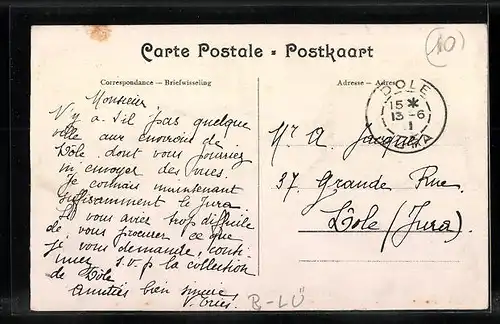 Carte Postale - Postkaart
Correspondance — Briefwisseling
Adresse — Adres
(10)
DOLE
15 *
13-6
JURA
Monsieur
N'y a-t-il pas quelque
ville aux environs de
Dôle dont vous pourriez
m'envoyer des vues.
Je connais maintenant
suffisamment le Jura.
Si vous aviez trop difficile
de vous procurer ce que
je vous demande, conti-
nuez s.v.p la collection
de Dôle
Amitiés bien
Mr A. Jacques
37 Grande Rue
Dôle (Jura)
B-LÜ